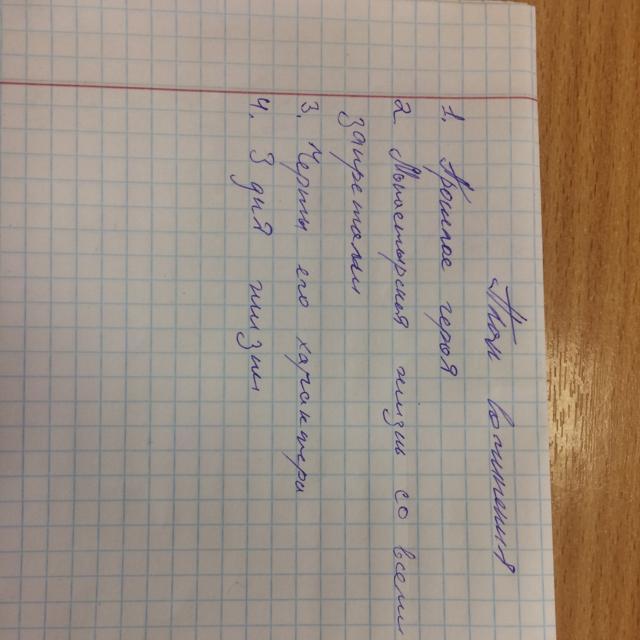 План сочинения
1. Прошлое героя
2. Монастырская жизнь со всеми
запретами
3. Черты его характера
4. 3 дня жизни